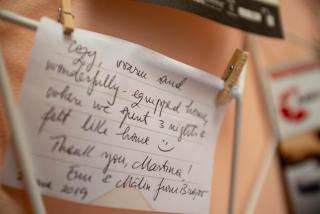 Cozy, warm and
wonderfully-equipped home,
where we spent 3 nights
felt like home
Thank you, Martina!
& Malin from
2019